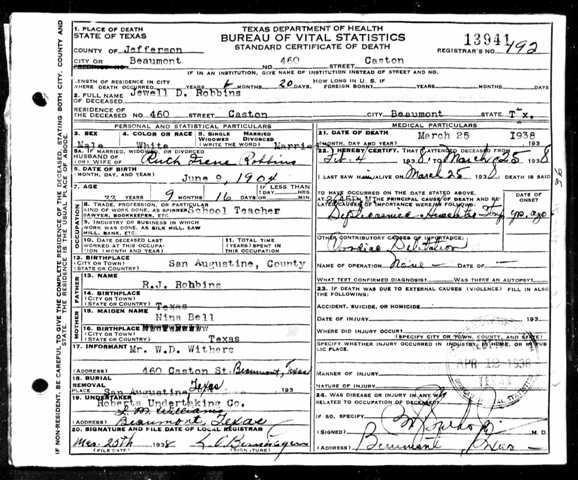 1. PLACE OF DEATH
STATE OF TEXAS
TEXAS DEPARTMENT OF HEALTH
BUREAU OF VITAL STATISTICS
STANDARD CERTIFICATE OF DEATH
13941
REGISTRAR'S NO. 492
COUNTY OF Jefferson
CITY OR Beaumont NO. 460 STREET Caston
IF IN AN INSTITUTION, GIVE NAME OF INSTITUTION INSTEAD OF STREET AND NO.
LENGTH OF RESIDENCE IN CITY WHERE DEATH OCCURRED YEARS MONTHS 20 DAYS. HOW LONG IN U.S. IF FOREIGN BORN? YEARS MONTHS DAYS
2. FULL NAME OF DECEASED Jewell D. Robbins
RESIDENCE OF THE DECEASED NO. 460 STREET Caston CITY Beaumont STATE Tx.
PERSONAL AND STATISTICAL PARTICULARS
3. SEX Male
4. COLOR OR RACE White
5. SINGLE MARRIED WIDOWED DIVORCED (WRITE THE WORD) Marrie
5A. IF MARRIED, WIDOWED, OR DIVORCED
HUSBAND OF (OR) WIFE OF Ruth Irene Robbins
6. DATE OF BIRTH (MONTH, DAY, AND YEAR) June 9, 1904
7. AGE 33 9 16 DAYS IF LESS THAN 1 DAY
OCCUPATION
8. TRADE, PROFESSION, OR PARTICULAR KIND OF WORK DONE, AS SPINNER, SAWYER, BOOKKEEPER, ETC. School Teacher
9. INDUSTRY OR BUSINESS IN WHICH WORK WAS DONE, AS SILK MILL, SAW MILL, BANK, ETC.
10. DATE DECEASED LAST WORKED AT THIS OCCUPATION (MONTH AND YEAR)
11. TOTAL YEARS SPENT IN THIS OCCUPATION
12. BIRTHPLACE (CITY OR TOWN) (STATE OR COUNTRY) San Augustine, County
FATHER
13. NAME R.J. Robbins
14. BIRTHPLACE (CITY OR TOWN) (STATE OR COUNTRY) Texas
MOTHER
15. MAIDEN NAME Nina Bell
16. BIRTHPLACE (CITY OR TOWN) (STATE OR COUNTRY) Texas
17. INFORMANT Mr. W.D. Withers
(ADDRESS) 460 Caston St. Beaumont, Texas
18. BURIAL REMOVAL PLACE San Augustine Texas DATE 193
19. UNDERTAKER Roberts Undertaking Co.
J. M. Williams
(ADDRESS) Beaumont, Texas
20. SIGNATURE AND FILE DATE OF LOCAL REGISTRAR
Mar 25th 1938
(FILE DATE) (SIGNATURE)
MEDICAL PARTICULARS
21. DATE OF DEATH (MONTH, DAY AND YEAR) March 25 1938
22. I HEREBY CERTIFY, THAT I ATTENDED DECEASED FROM Feb. 4 1938, TO March 25 1938
I LAST SAW HIM ALIVE ON March 25 1938, DEATH IS SAID TO HAVE OCCURRED ON THE DATE STATED ABOVE
THE PRINCIPAL CAUSE OF DEATH AND RELATED CAUSES OF IMPORTANCE DATE OF ONSET
OTHER CONTRIBUTORY CAUSES OF IMPORTANCE:
NAME OF OPERATION None
WHAT TEST CONFIRMED DIAGNOSIS? WAS THERE AN AUTOPSY?
23. IF DEATH WAS DUE TO EXTERNAL CAUSES (VIOLENCE) FILL IN ALSO THE FOLLOWING:
ACCIDENT, SUICIDE, OR HOMICIDE?
DATE OF INJURY 193
WHERE DID INJURY OCCUR?
(SPECIFY CITY OR TOWN, COUNTY, AND STATE)
SPECIFY WHETHER INJURY OCCURRED IN INDUSTRY, IN HOME, OR IN PUBLIC PLACE.
APR 12 1938
MANNER OF INJURY
NATURE OF INJURY
24. WAS DISEASE OR INJURY IN ANY WAY RELATED TO OCCUPATION OF DECEASED?
IF SO, SPECIFY
(SIGNED) M.D.
(ADDRESS) Beaumont, Texas